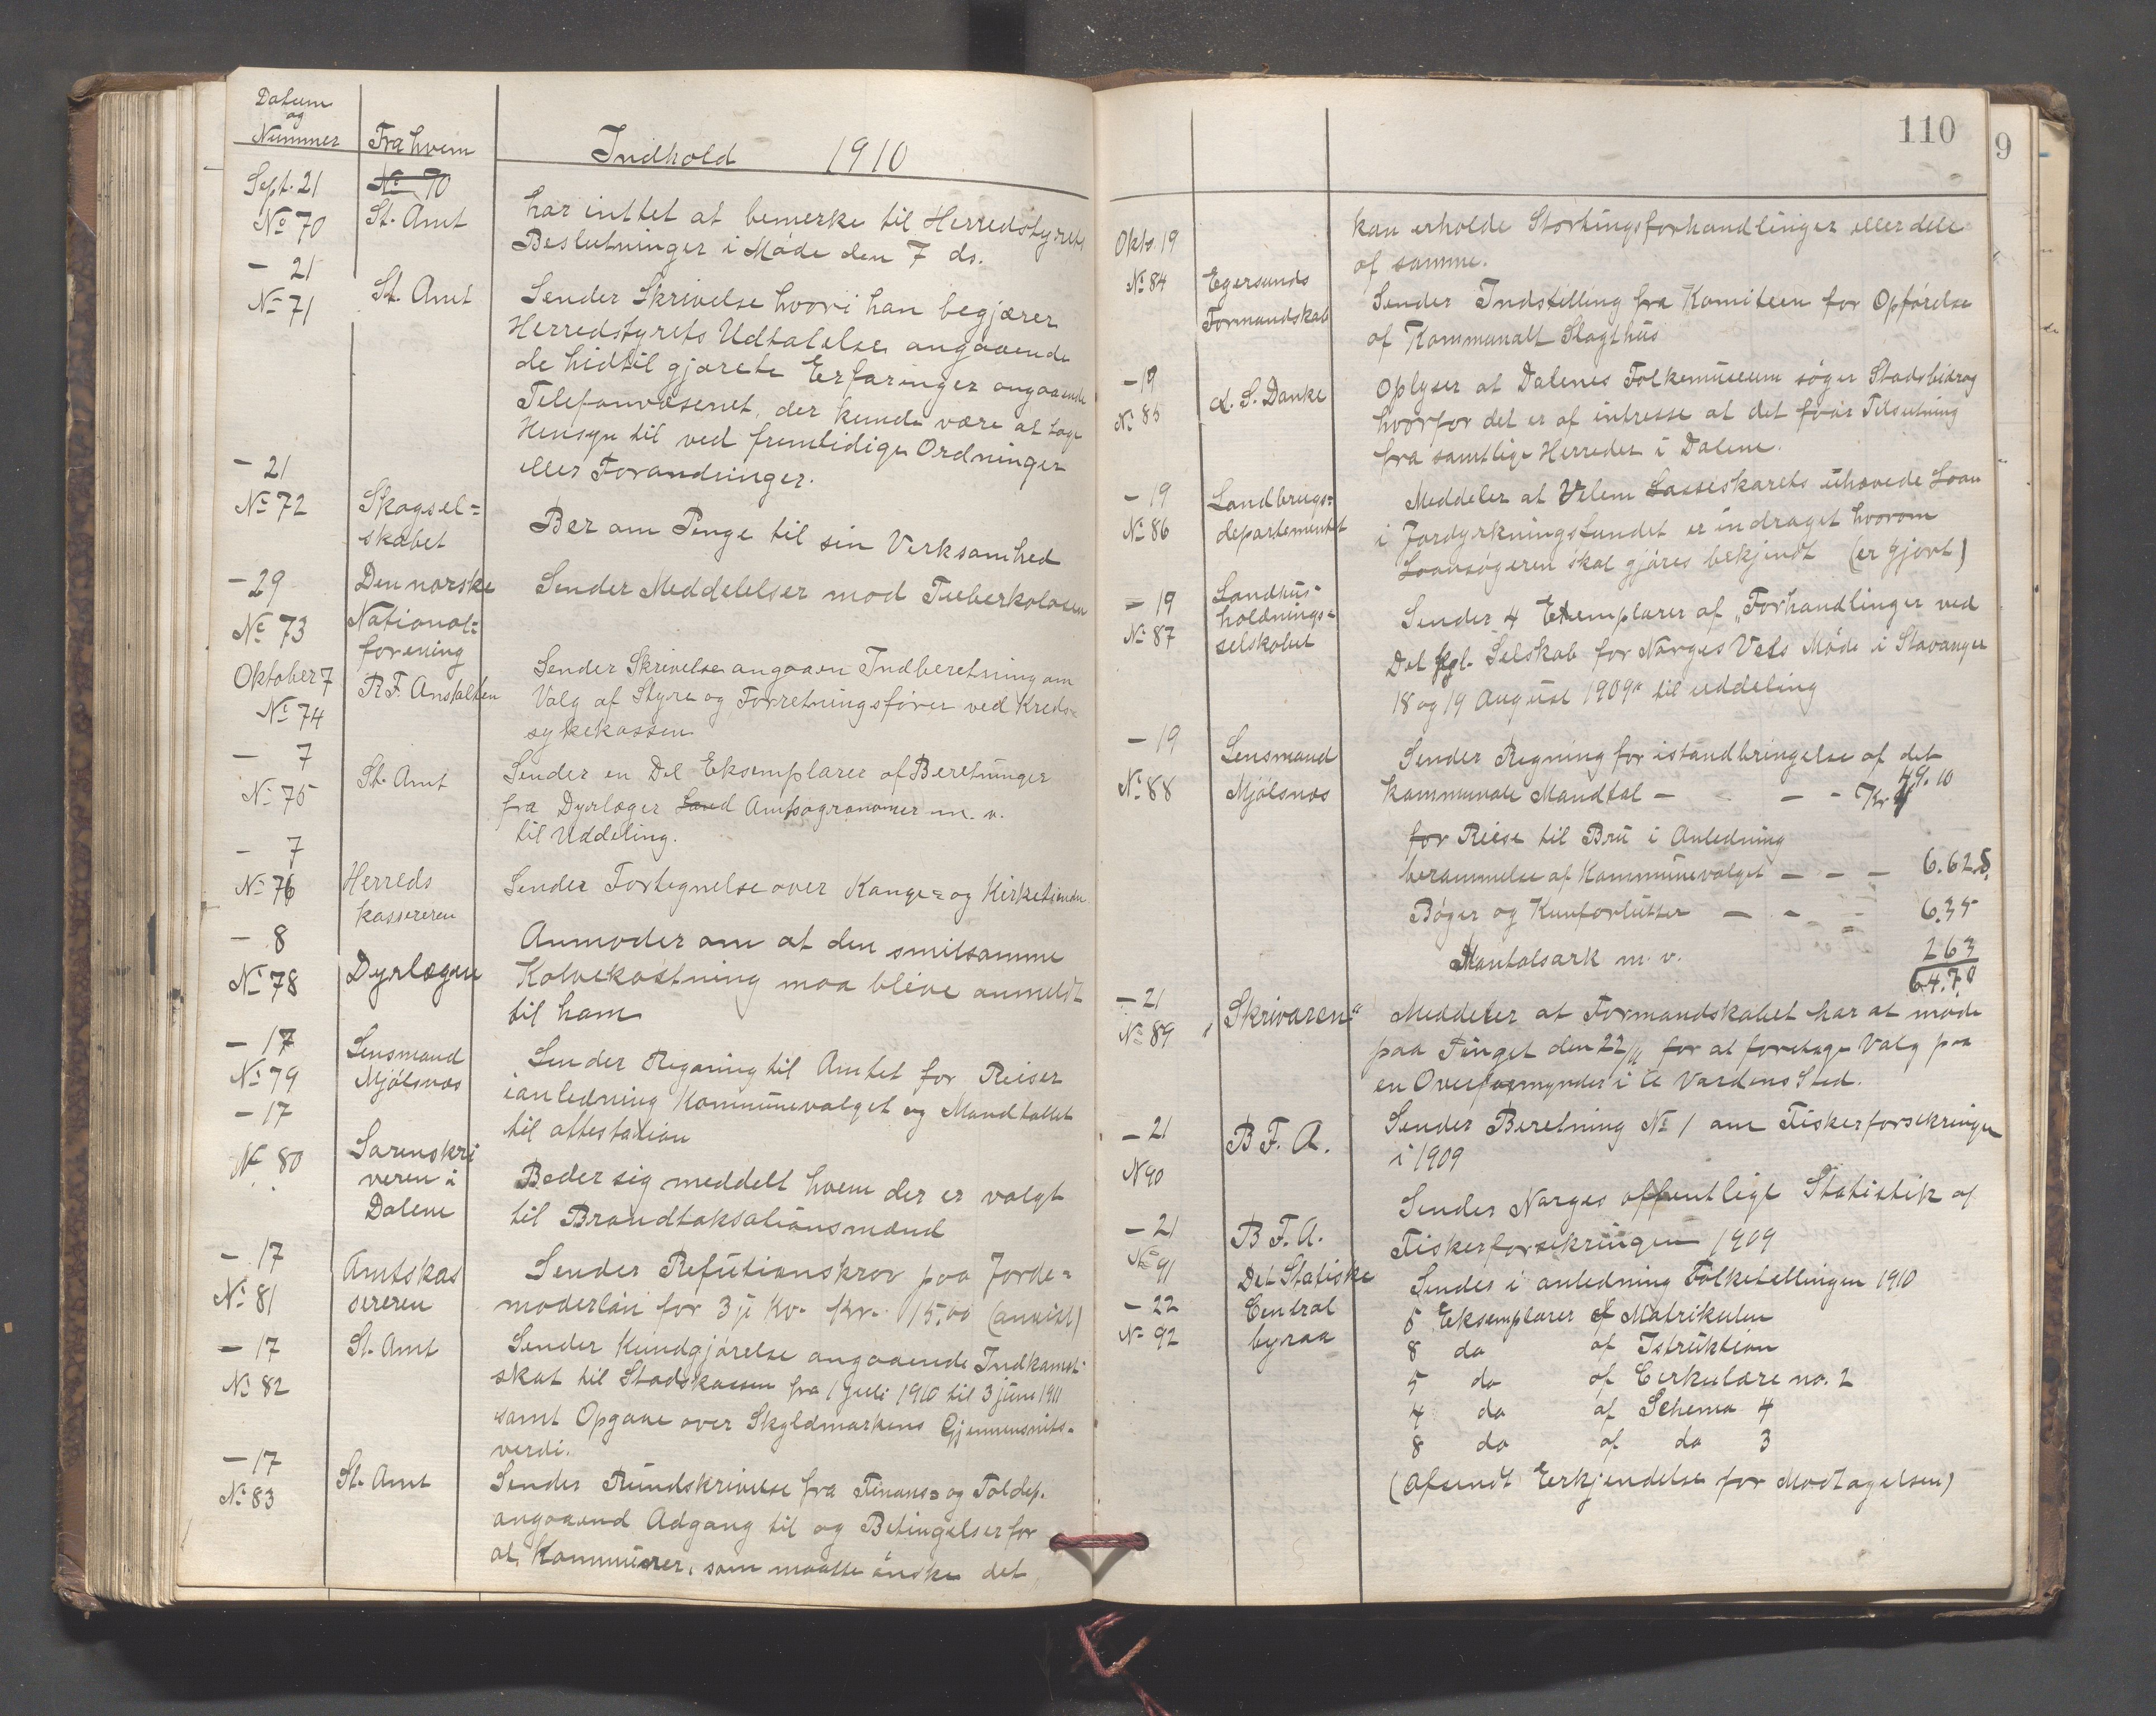 Datum
og
Nummer
Fra hvem
Indhold 1910
Sept. 21
No 70
No 70
St. Amt
har inttet at bemerke til Herredstyrets
Beslutninger i Møde den 7 ds.
- 21
No 71
St. Amt
Sender Skrivelse hvori han begjærer
Herredstyrets Udtalelse angaaende
de hidtil gjorete Erfaringer angaaende
Telefonvæsenet, der kunde være at tage
Hensyn til ved fremtidige Ordninger
eller Forandringer.
- 21
No 72
Skogsel=
skabet
Ber om Penge til sin Verksamhed
- 29
No 73
Den norske
National=
forening
Sender Meddelelser mod Tuberkolosen
Oktober 7
No 74
R.F. Anstalten
Sender Skrivelse angaaen Indberetning om
Valg af Styre og Forretningsfører ved Kreds=
sykekassen
- 7
No 75
St. Amt
Sender en Del Eksemplarer af Beretninger
fra Dyrlæger Land Amtsagronomer m. v.
til Uddeling.
- 7
No 76
Herreds
kassereren
Sender Fortegnelse over Konge= og Kirketiende
- 8
No 78
Dyrlægen
Anmoder om at den smitsamme
Kalvekastning maa blive anmeldt
til ham
- 17
No 79
Lensmand
Mjølsnes
Sender Regning til Amtet for Reiser
ianledning Kommunevalget og Mandtallet
til attestation
- 17
No 80
Sorenskri
veren i
Dalene
Beder sig meddelt hvem der er valgt
til Brandtaksationsmænd
- 17
No 81
Amtskas
sereren
Sender Refutionskrav paa Jorde=
moderløn for 3je Kv. Kr. 15,00 (anvist)
- 17
No 82
St. Amt
Sender Kundgjørelse angaaende Indkomst=
skat til Stadskassen fra 1 Juli 1910 til 3 juni 1911
samt Opgave over Skyldmarkens Gjennensnits=
verdi.
- 17
No 83
St. Amt
Sender Rundskrivelse fra Finans= og Toldep.
angaaend Adgang til og Betingelser for
at Kommuner, som maatte ønske det
110
9
kan erholde Stortingsforhandlinger eller dele
af samme.
Okto 19
No 84
Egersunds
Formandskab
Sender Indstilling fra Komiteen for Opførelse
af Kommunalt Slagthus
- 19
No 85
S. Danke
Oplyser at Dalenes Folkemuseum søger Stadsbidrag
hvorfor det er af intresse at det faar Tilsutning
fra samtlige Herreder i Dalene.
- 19
No 86
Landbrugs=
departementet
Meddeler at Velem Lasseskarets uhævede Loan
i Jordyrkningsfundet er indraget hvorom
Loansøgeren skal gjøres bekjendt (er gjort)
- 19
No 87
Landhus=
holdnings=
selskabet
Sender 4 Eksemplarer af „Forhandlinger ved
Det kgl. Selskab for Norges Vels Møde i Stavanger
18 og 19 August 1909" til uddeling
- 19
No 88
Lensmand
Mjølsnes
Sender Regning for istandbringelse af det
kommunale Mandtal - - - Kr 49.10
for Reise til Bru i Anledning
berammelse af Kommunevalget - - - 6.62
Bøger og Kunforlutter - - - 6.35
Mantalsark m. v. 2 63
64.70
- 21
No 89
„Skrivaren"
Meddeler at Formandskabet har at møde
paa Tinget den 22/11 for at foretage Valg paa
en Overformynder i A Vardens Sted.
- 21
N 90
B F. A.
Sender Beretning No 1 om Fiskerforsikringen
i 1909
- 21
No 91
B F. A.
Sender Norges offentlige Statistik af
Fiskerforsikringen 1909
- 22
No 92
Det Statiske
Central
byraa
Sender i anledning Folketellingen 1910
5 Eksemplarer af Matrikulen
8 do af Istruktion
5 do af Cirkulare no. 2
4 do af Schema 4
8 do af do 3
(Afsendt Erkjendelse for Modtagelsen)